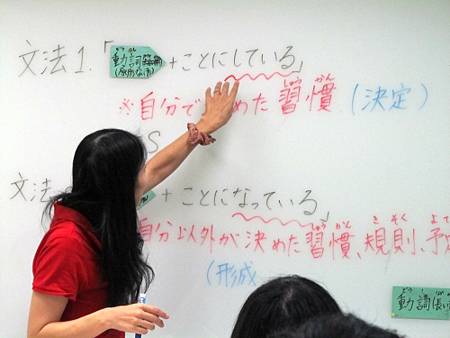 文法1.「動詞 +ことにしている」
(原形)
※自分で めた習慣 (決定)
S
文法 +ことになっている」
自分以外が決めた習慣、規則、予
(形成
動詞(長い